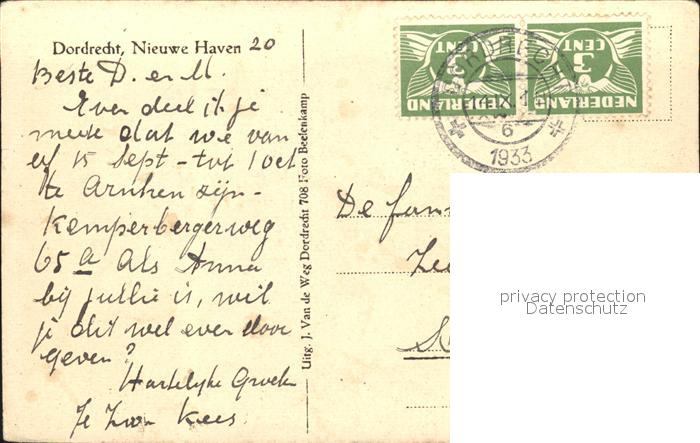 Dordrecht, Nieuwe Haven 20
Beste D. en M.
Even deel ik je
mede dat we van
af 15 Sept - tot 1 Oct
te Arnhem zijn -
Kemperbergerweg
65 a Als Anna
bij jullie is, wil
je dit wel even door
geven?
Hartelijke Groeten
Je Zoon Kees
Uitg. J. Van de Weg Dordrecht 708 Foto Beelenkamp
CENT 3
NEDERLAND
CENT 3
NEDERLAND
DORDRECHT
6
1933
De fam
privacy protection
Datenschutz